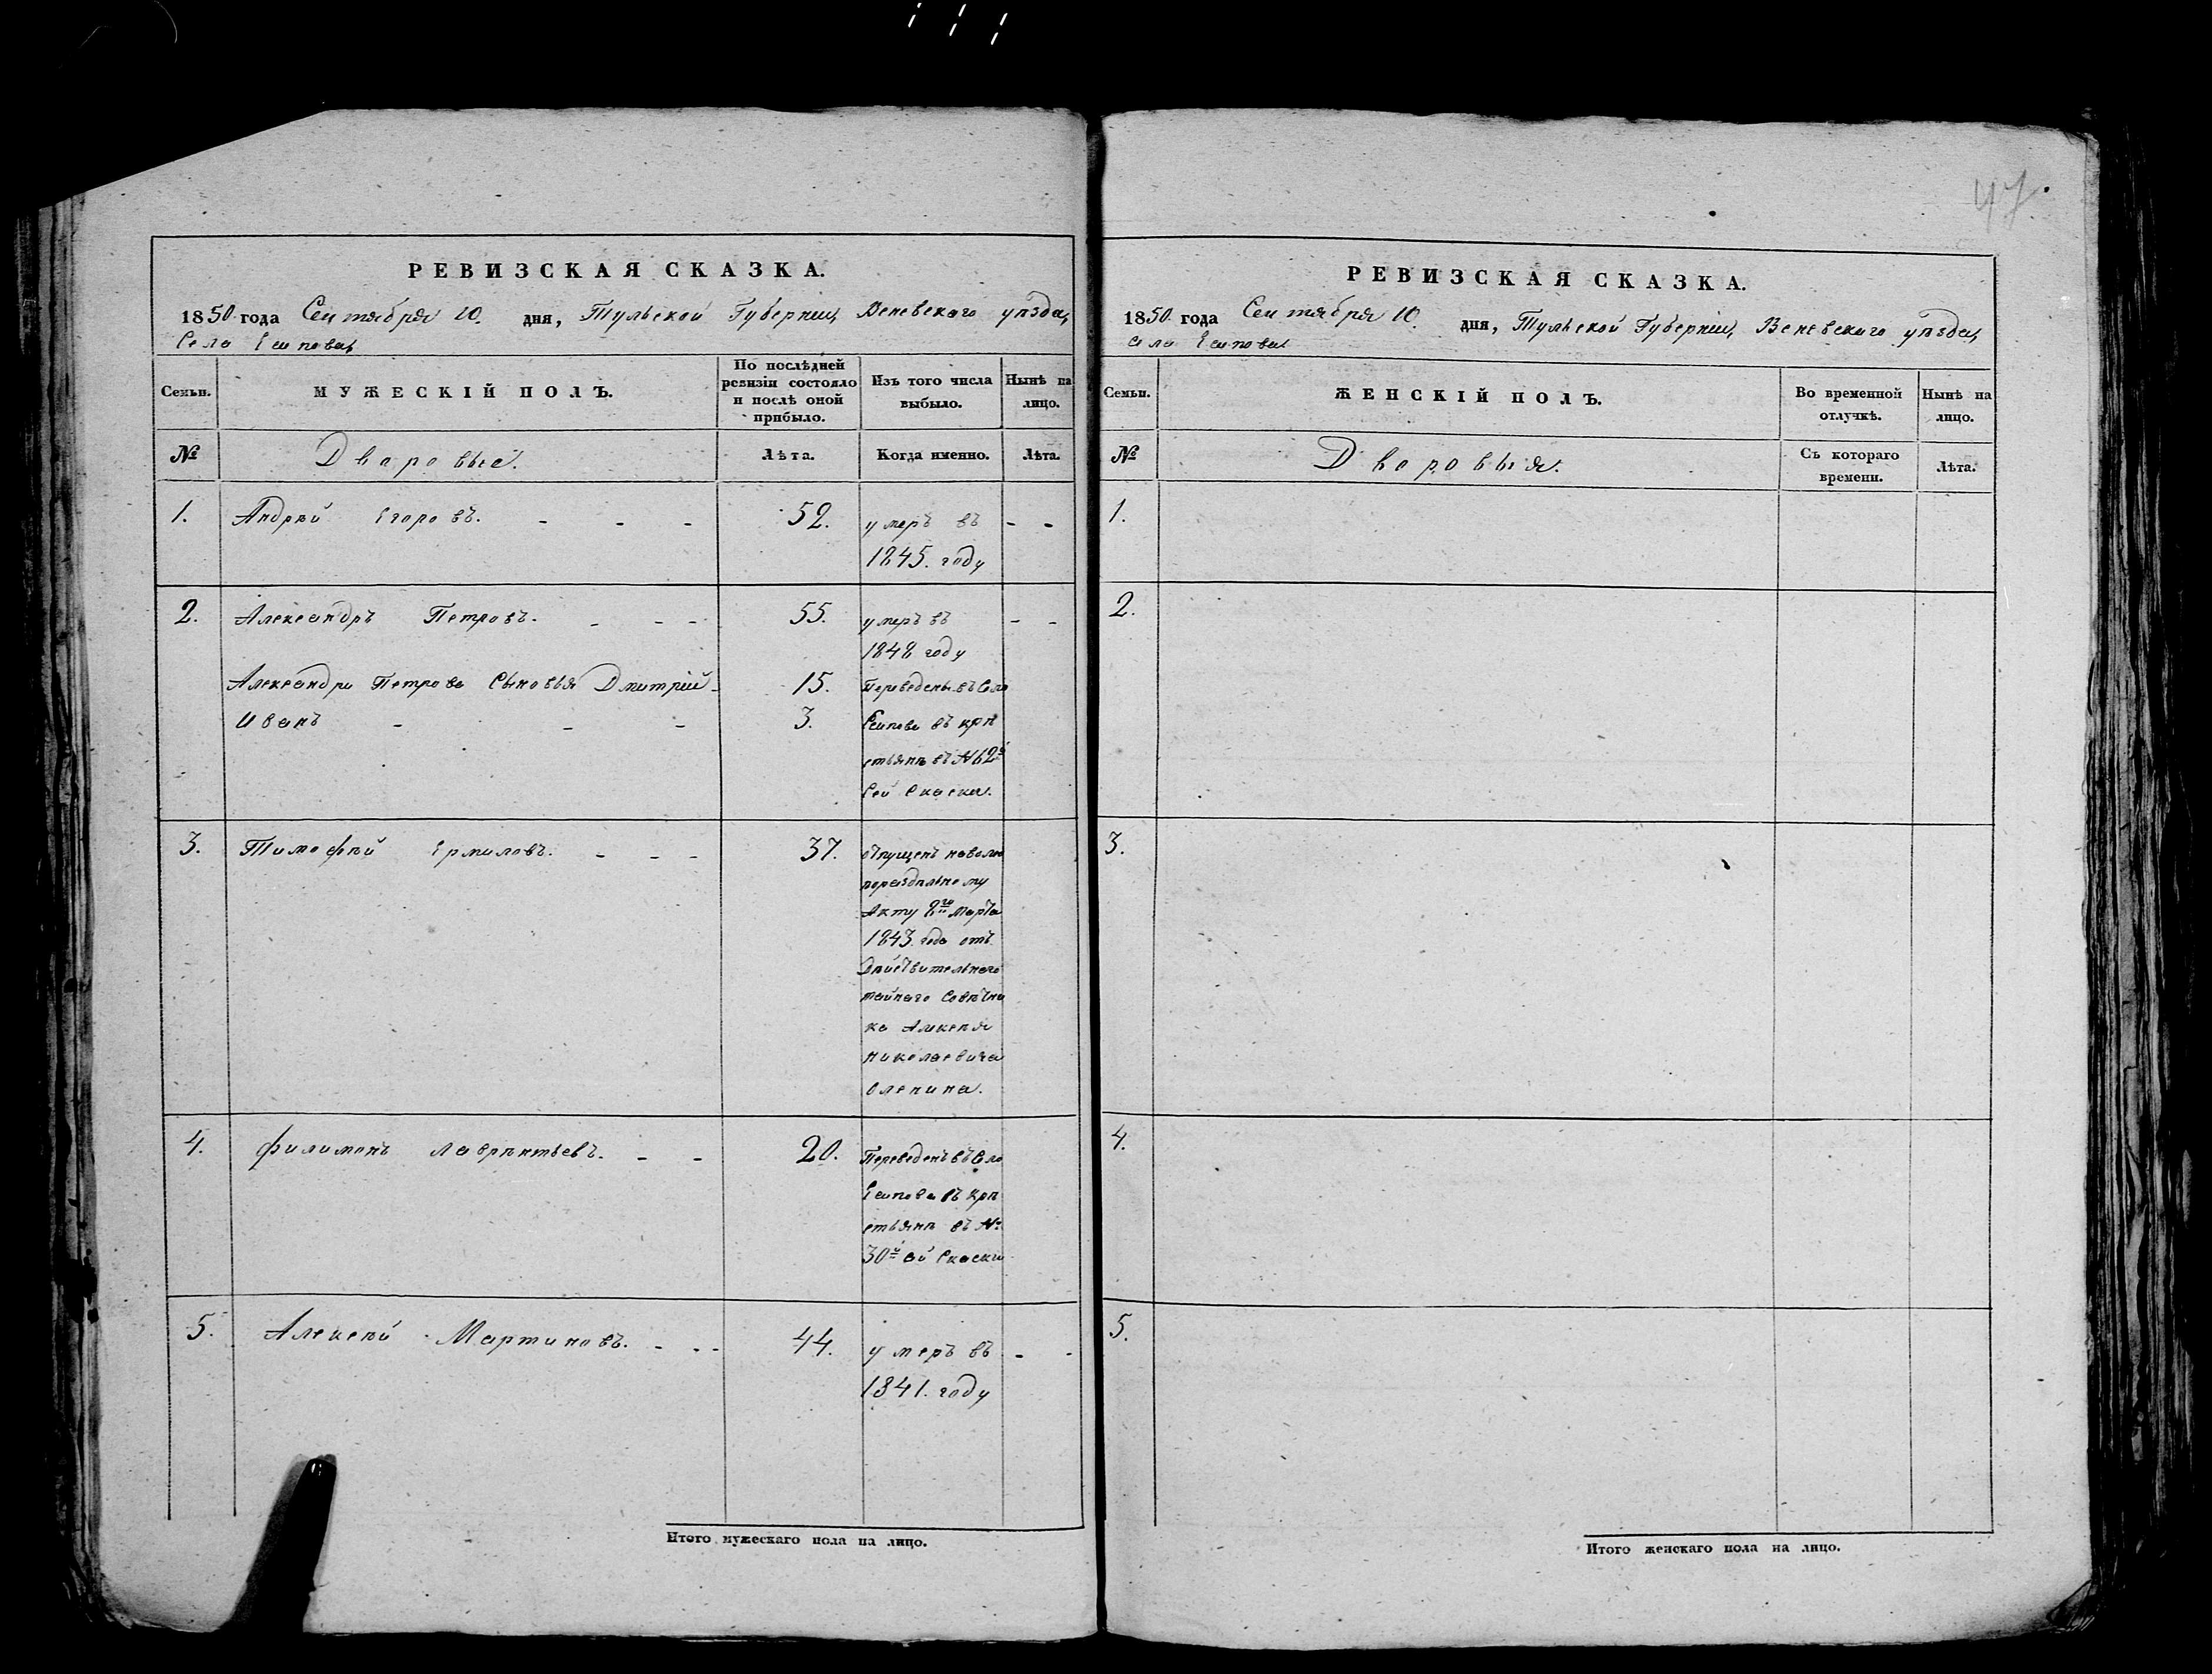 47.
РЕВИЗСКАЯ СКАЗКА.
1850 года Сентября 10. дня, Тульской Губерніи, Веневского уѣзда,
Села Есипова
Семьи.
МУЖЕСКІЙ ПОЛЪ.
По послѣдней ревизіи состояло и послѣ оной прибыло.
Изъ того числа выбыло.
Нынѣ на лицо.
№
Дваровые.
Лѣта.
Когда именно.
Лѣта.
1. Андрѣй Егоровъ. - - - 52. умеръ въ - -
1845. году
2. Александръ Петровъ. - - - 55. умеръ въ - -
1848 году
Александра Петрова Сыновья Дмитрій - 15. Переведены въ Село
Иванъ - - - 3. Есипово въ крѣ
стьянѣ въ №62й
сей Скаски.
3. Тимофѣй Ермиловъ. - - - 37. отпущенъ наволю
пораздѣльному
Акту 8го Марта
1843. года отъ
Дѣйствительнаго
тайнаго Совѣтни
ка Алексѣя
Николаевича
Оленина.
4. Филимонъ Лаврѣнтьевъ. - - 20. Переведенъ въ Село
Есипова въ Крѣ
стьянѣ въ №
30й сей Скаски
5. Алексѣй Мартиновъ. - - - 44. умеръ въ - -
1841. году
Итого мужескаго пола на лицо.
РЕВИЗСКАЯ СКАЗКА.
1850 года Сентября 10. дня, Тульской Губерніи, Веневскаго уѣзда,
села Есипова
Семьи.
ЖЕНСКІЙ ПОЛЪ.
Во временной отлучкѣ.
Нынѣ на лицо.
№
Дворовыя.
Съ котораго времени.
Лѣта.
1.
2.
3.
4.
5.
Итого женскаго пола на лицо.